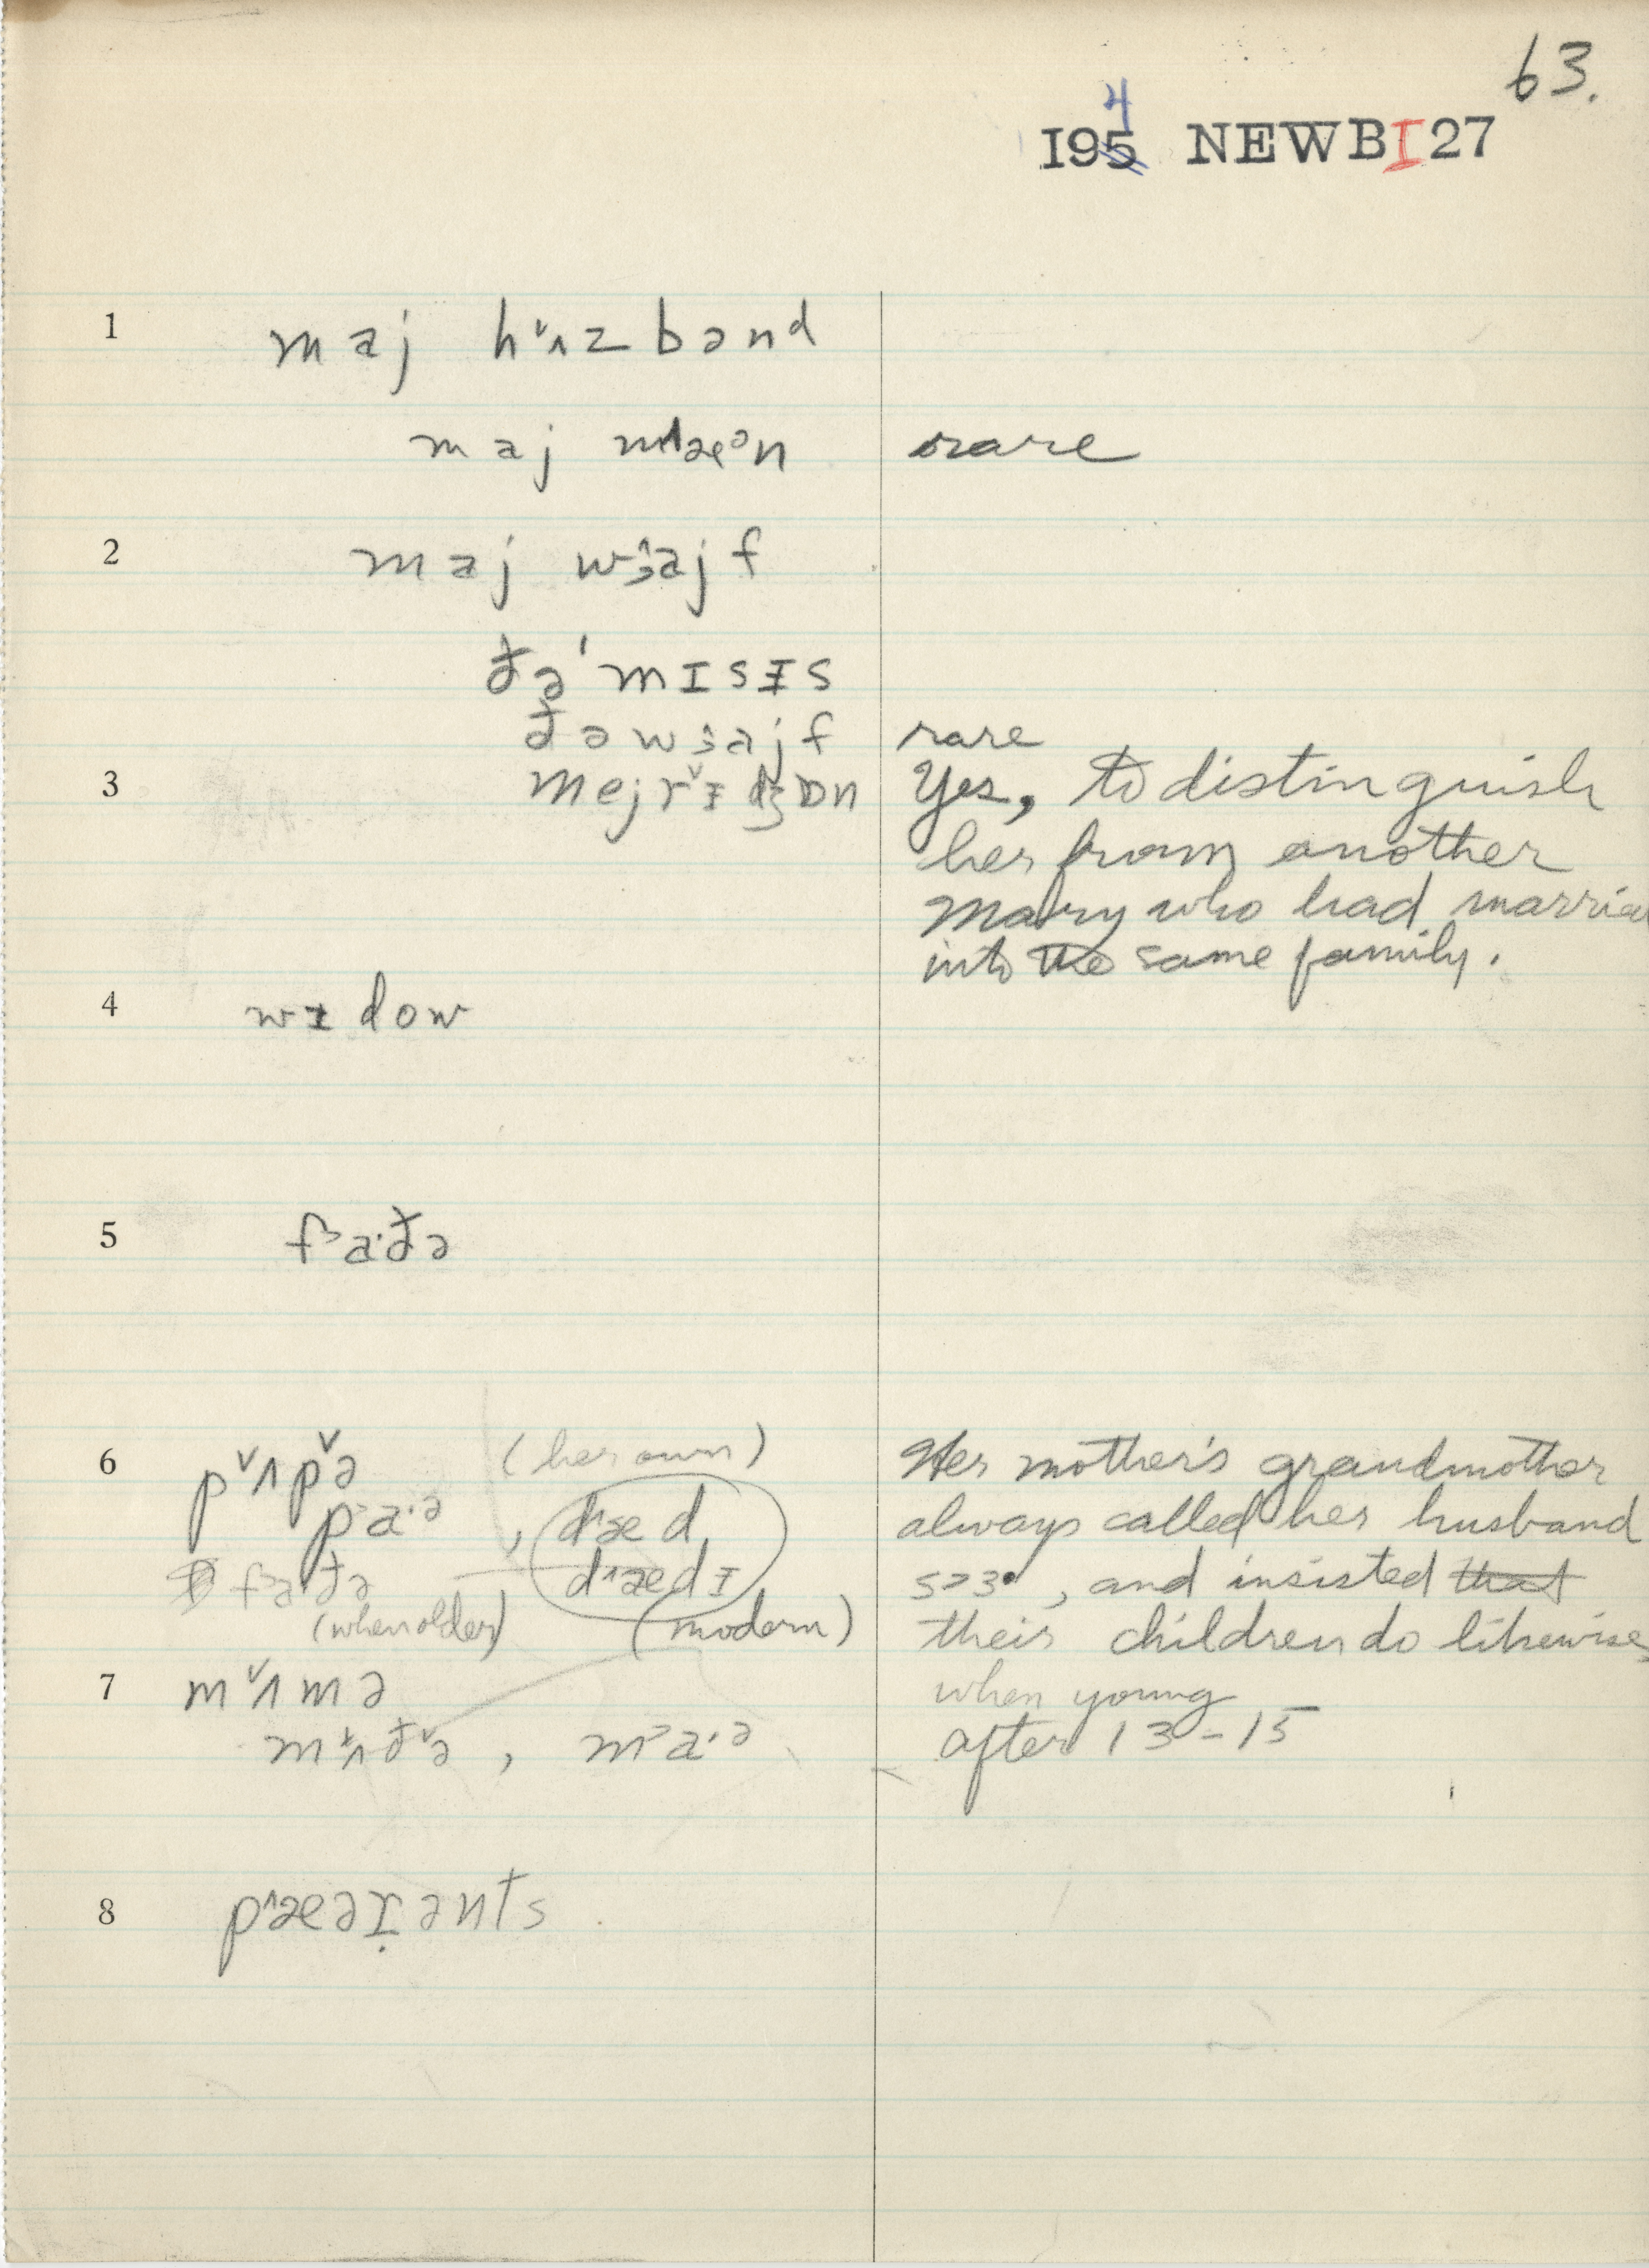 63.
4
I95 NEWBI27
1 maj hʌzbənd
maj mæᵊn rare
2 maj wɜajf
ðə'mɪsɪs
ðəwɜajf rare
3 mejrɪdʒɒn Yes, to distinguish
her from another
Mary who had married
into the same family.
4 wɪdow
5 fɜa·ðə
6 pʌpə (her own) Her mother's grandmother
pa·ə, dæd always called her husband
fa·ðə dædɪ sɜ, and insisted that
(when older) (modern) their children do likewise,
7 mʌmə when young
mʌðə, ma·ə after 13-15
8 pæəɪənts